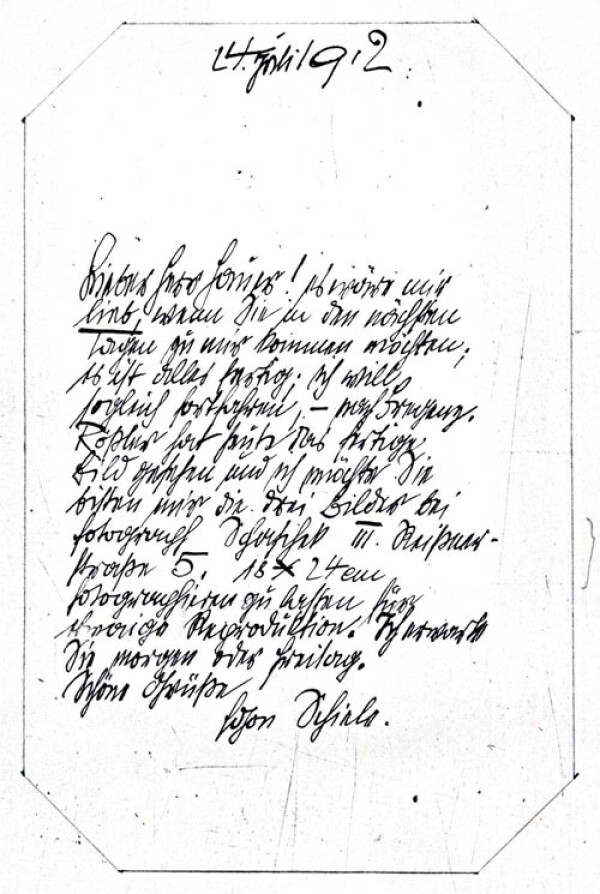 24. Juli 1912.
Lieber Herr Hauer! es wäre mir
lieb, wenn Sie in den nächsten
Tagen zu mir kommen möchten;
es ist alles fertig; ich will
sogleich fortfahren, – nach Bregenz.
Rößler hat heute das fertige
Bild gesehen und ich möchte Sie
bitten mir die drei Bilder bei
fotograph Schaschek III. Reißner-
straße 5. 18 x 24 cm
fotographieren zu lassen für
etwaige Reproduktion. Ich erwarte
Sie morgen oder Freitag.
Schöne Grüße
Egon Schiele.